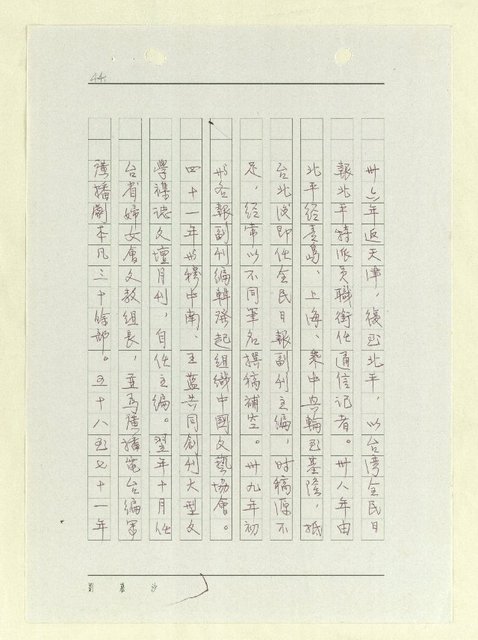 44
卅六年返天津，後至北平，以台湾全民日
報北平特派員職銜任通信記者。卅八年由
北平經青島、上海、乘中興輪至基隆，抵
台北後即任全民日報副刊主編，时稿源不
足，經常以不同筆名撰稿補空。卅九年初
與各報副刊編輯發起組織中國文藝協會。
四十一年與穆中南、王藍共同創刊大型文
學襍誌文壇月刊，自任主編。翌年十月任
台省婦女會文教組長，並為廣播電台編寫
廣播劇本凡三十餘部。五十八至七十一年
劉慕沙